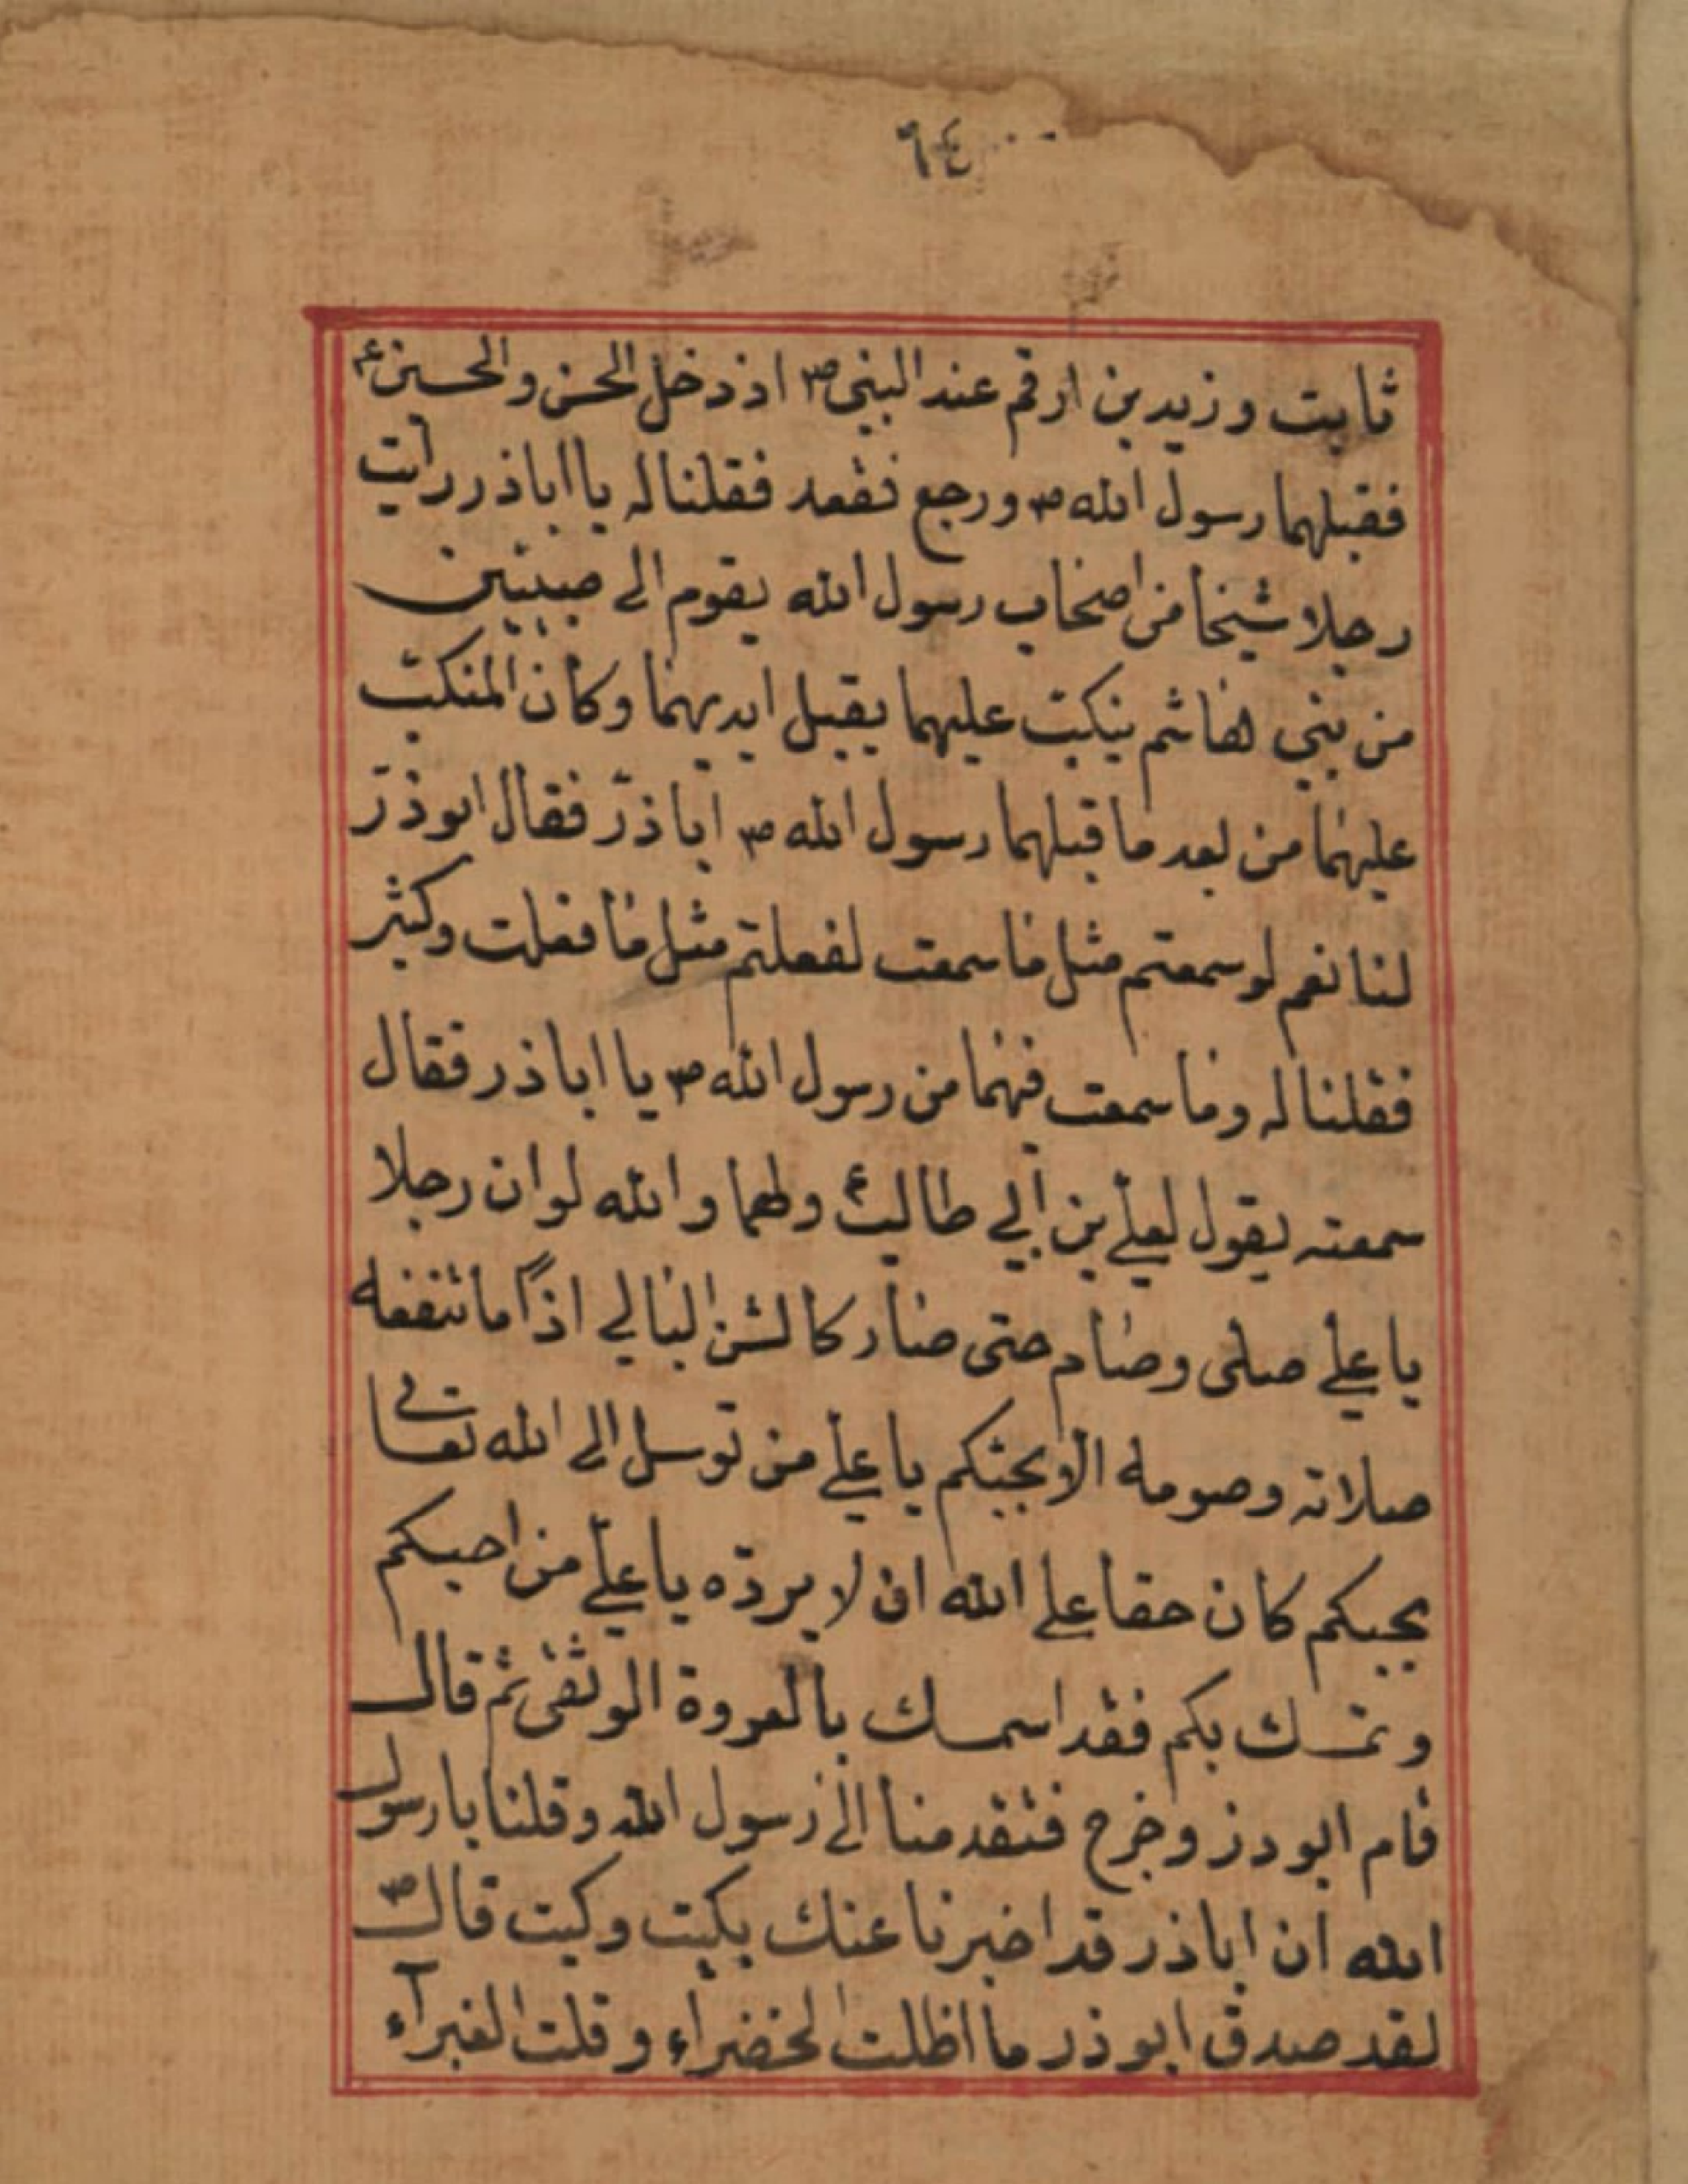 ٦٤
ثابت وزيد بن ارقم عند النبي ص اذ دخل الحسن والحسين ع
فقبلهما رسول الله ص ورجع فقعد فقلنا له يا اباذر رايت
رجلا شيخا من اصحاب رسول الله يقوم الى صبيين
من بني هاشم ينكبّ عليهما يقبل ايديهما وكان المنكبّ
عليهما من بعد ما قبلهما رسول الله ص اباذرّ فقال ابوذرّ
لنا نعم لو سمعتم مثل ما سمعت لفعلتم مثل ما فعلت وكثير
فقلنا له وما سمعت فيهما من رسول الله ص يا اباذر فقال
سمعته يقول لعلي بن ابي طالب ع ولهما والله لو ان رجلا
يا علي صلى وصام حتى صار كالشن البالي اذاً ما تنفعه
صلاته وصومه الا بحبّكم يا علي من توسل الى الله تعالى
بحبكم كان حقا على الله ان لا يردّه يا عليّ من احبكم
وتمسك بكم فقد اسمسك بالعروة الوثقى ثم قال
قام ابو دز وخرج فتقدمنا الى رسول الله وقلنا يا رسول
الله ان اباذر قد اخبرنا عنك بكيت وكيت قال ص
لقد صدق ابوذر ما اظلت الخضراء وقلت الغبرآء